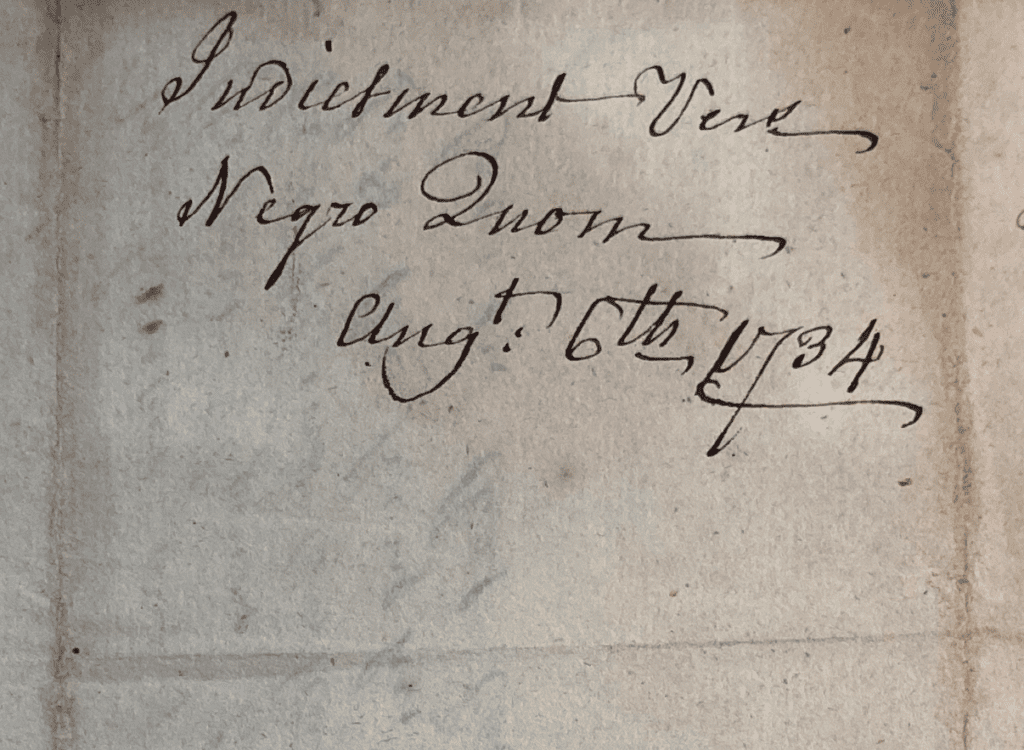 Indictment Vers
Negro Quom
Augt: 6th 1734